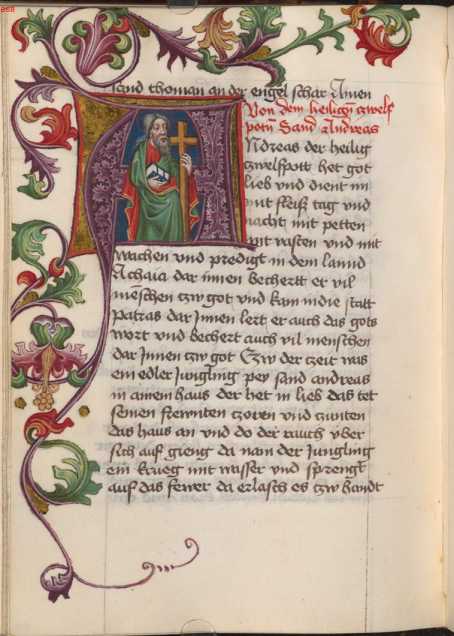 sand thoman an der engel schar Amen
Von dem heiligen zwelf
poten Sand Andreas
Ndreas der heilig
zwelfpott het got
lieb vnd dient im
mit fleiß tag vnd
nacht mit petten
mit vasten vnd mit
wachen vnd predigt in dem lannd
Achaia dar innen bechertt er vil
menschen czw got vnd kam in die statt
Patras dar Innen lert er auch das gots
wort vnd bechert auch vil menschen
dar Innen czw got Czw der czeit was
ein edler Jungling pey sand andreas
in ainem haus der het in lieb das tet
seinen frewnten zoren vnd zunten
das haus an vnd do der rauch vber
sich auf gieng da nam der Jungling
ein krueg mit wasser vnd sprengt
auf das fewer da erlasch es czw handt